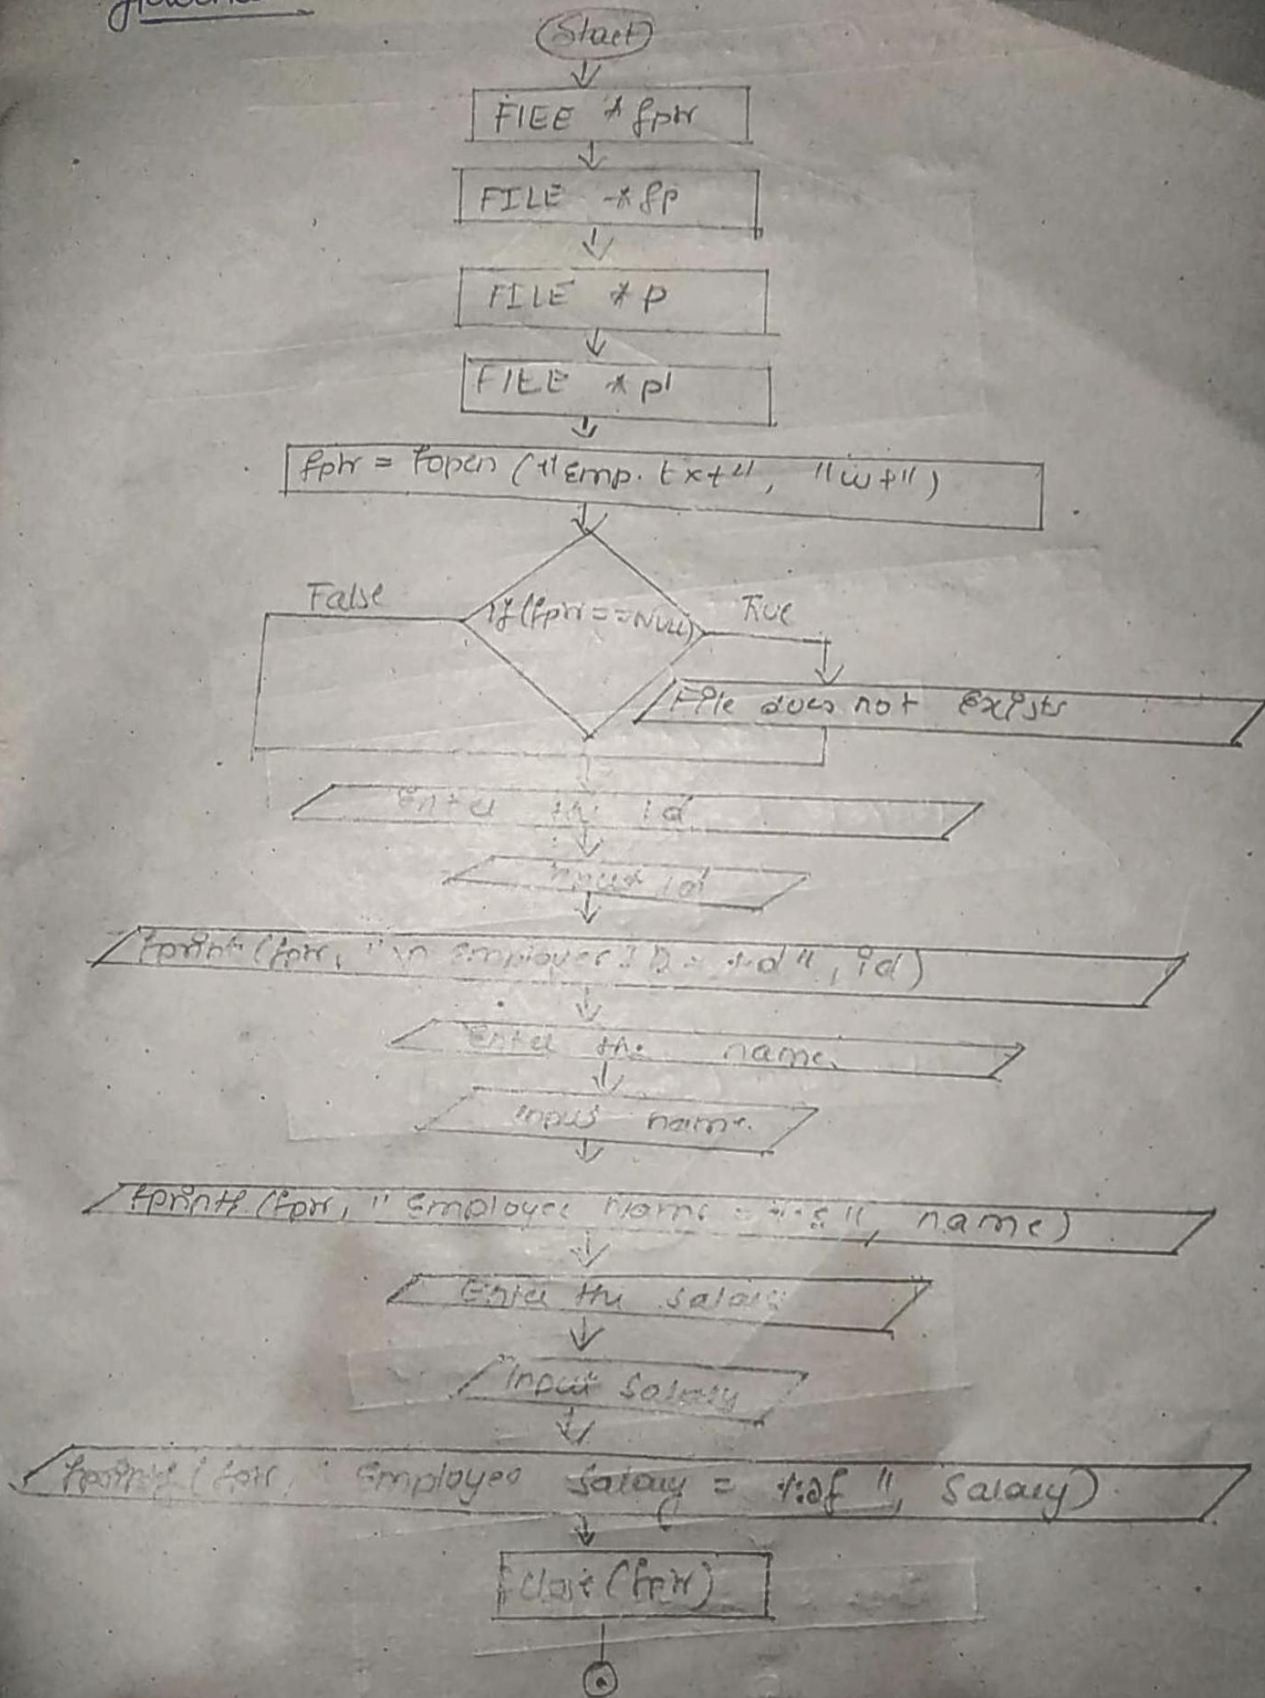 Start
FILE *fptr
FILE *fp
FILE *p
FILE *p1
fptr = fopen ("Emp.txt", "w+")
False
if (fptr==NULL)
True
File does not Exists
Enter the id
input id
fprintf (fptr, "\n Employee ID = %d", id)
Enter the name
input name
fprintf (fptr, " Employee Name = %s", name)
Enter the salary
Input Salary
fprintf (fptr, " Employee Salary = %.2f ", Salary)
fclose (fptr)